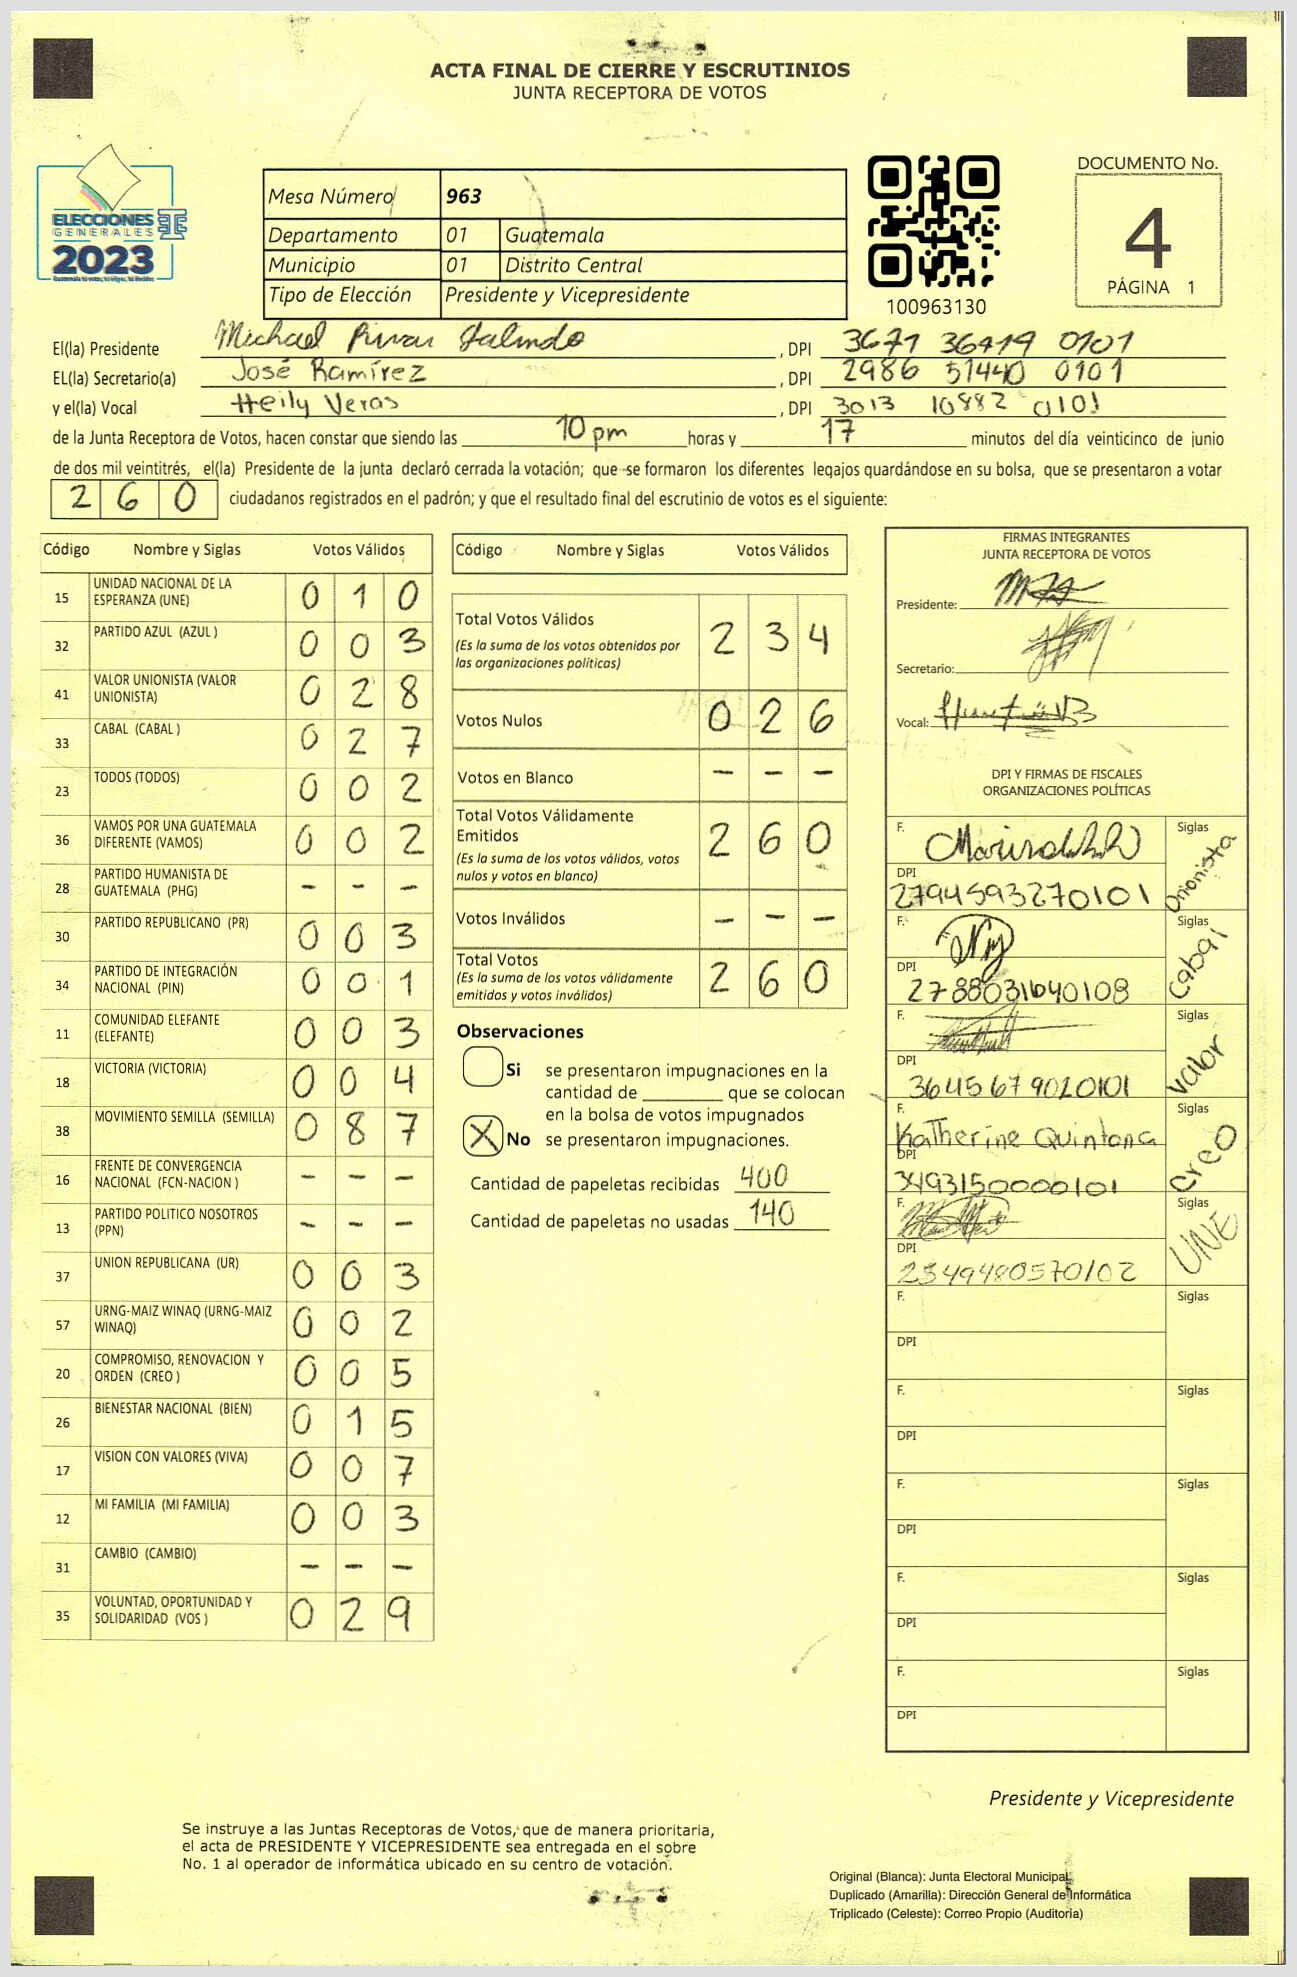 ACTA FINAL DE CIERRE Y ESCRUTINIOS
JUNTA RECEPTORA DE VOTOS
ELECCIONES
GENERALES
2023
Mesa Número 963
Departamento 01 Guatemala
Municipio 01 Distrito Central
Tipo de Elección Presidente y Vicepresidente
100963130
DOCUMENTO No.
4
PÁGINA 1
El(la) Presidente Michael , DPI 3671 36419 0101
EL(la) Secretario(a) José Ramírez , DPI 2986 51440 0101
y el(la) Vocal Heily Veras , DPI 3013 10882 0101
de la Junta Receptora de Votos, hacen constar que siendo las 10 pm horas y 17 minutos del día veinticinco de junio
de dos mil veintitrés, el(la) Presidente de la junta declaró cerrada la votación; que se formaron los diferentes legajos guardándose en su bolsa, que se presentaron a votar
260 ciudadanos registrados en el padrón; y que el resultado final del escrutinio de votos es el siguiente:
Código Nombre y Siglas Votos Válidos
15 UNIDAD NACIONAL DE LA ESPERANZA (UNE) 0 1 0
32 PARTIDO AZUL (AZUL ) 0 0 3
41 VALOR UNIONISTA (VALOR UNIONISTA) 0 2 8
33 CABAL (CABAL ) 0 2 7
23 TODOS (TODOS) 0 0 2
36 VAMOS POR UNA GUATEMALA DIFERENTE (VAMOS) 0 0 2
28 PARTIDO HUMANISTA DE GUATEMALA (PHG) - - -
30 PARTIDO REPUBLICANO (PR) 0 0 3
34 PARTIDO DE INTEGRACIÓN NACIONAL (PIN) 0 0 1
11 COMUNIDAD ELEFANTE (ELEFANTE) 0 0 3
18 VICTORIA (VICTORIA) 0 0 4
38 MOVIMIENTO SEMILLA (SEMILLA) 0 8 7
16 FRENTE DE CONVERGENCIA NACIONAL (FCN-NACION ) - - -
13 PARTIDO POLITICO NOSOTROS (PPN) - - -
37 UNION REPUBLICANA (UR) 0 0 3
57 URNG-MAIZ WINAQ (URNG-MAIZ WINAQ) 0 0 2
20 COMPROMISO, RENOVACION Y ORDEN (CREO ) 0 0 5
26 BIENESTAR NACIONAL (BIEN) 0 1 5
17 VISION CON VALORES (VIVA) 0 0 7
12 MI FAMILIA (MI FAMILIA) 0 0 3
31 CAMBIO (CAMBIO) - - -
35 VOLUNTAD, OPORTUNIDAD Y SOLIDARIDAD (VOS ) 0 2 9
Código Nombre y Siglas Votos Válidos
Total Votos Válidos 2 3 4
(Es la suma de los votos obtenidos por
las organizaciones políticas)
Votos Nulos 0 2 6
Votos en Blanco - - -
Total Votos Válidamente
Emitidos 2 6 0
(Es la suma de los votos válidos, votos
nulos y votos en blanco)
Votos Inválidos - - -
Total Votos 2 6 0
(Es la suma de los votos válidamente
emitidos y votos inválidos)
Observaciones
Si se presentaron impugnaciones en la
cantidad de ________ que se colocan
en la bolsa de votos impugnados
X No se presentaron impugnaciones.
Cantidad de papeletas recibidas 400
Cantidad de papeletas no usadas 140
FIRMAS INTEGRANTES
JUNTA RECEPTORA DE VOTOS
Presidente:
Secretario:
Vocal:
DPI Y FIRMAS DE FISCALES
ORGANIZACIONES POLÍTICAS
F. Siglas Unionista
DPI 2794593270101
F. Siglas Cabal
DPI 2788031640108
F. Siglas Valor
DPI 3645679020101
F. Katherine Quintana Siglas Creo
DPI 3493150000101
F. Siglas UNE
DPI 2549480570102
F. Siglas
DPI
F. Siglas
DPI
F. Siglas
DPI
F. Siglas
DPI
F. Siglas
DPI
Presidente y Vicepresidente
Se instruye a las Juntas Receptoras de Votos, que de manera prioritaria,
el acta de PRESIDENTE Y VICEPRESIDENTE sea entregada en el sobre
No. 1 al operador de informática ubicado en su centro de votación.
Original (Blanca): Junta Electoral Municipal
Duplicado (Amarilla): Dirección General de Informática
Triplicado (Celeste): Correo Propio (Auditoria)